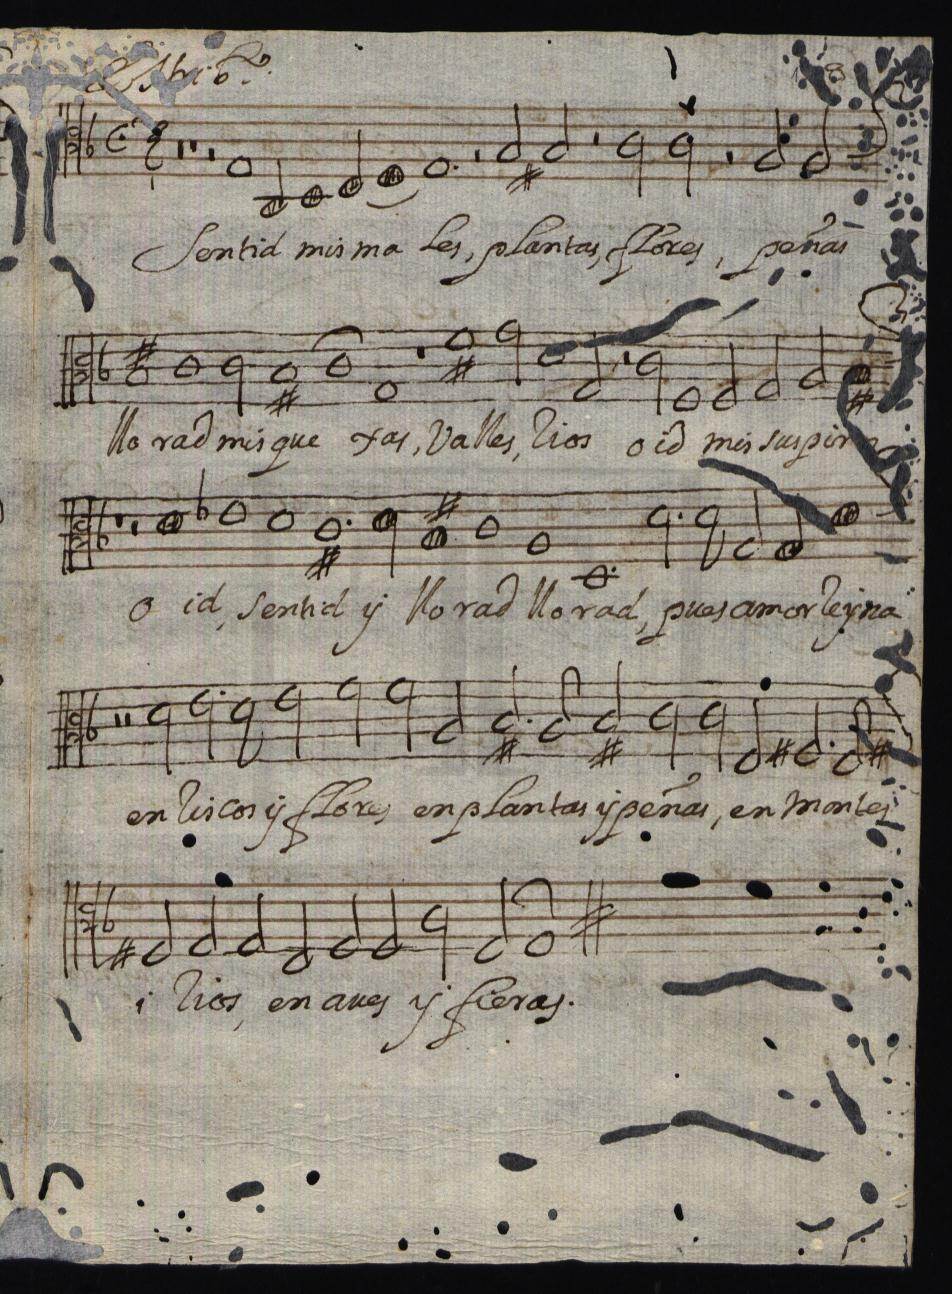 Estribº
Sentid mis ma les, plantas, flores, peñas
llo rad mis que xas, Valles, Rios oid mis suspiros
o id, sentid y llo rad llo rad, pues amor Reyna
en Riscos y flores en plantas y peñas, en montes
i Rios, en aues y fieras.